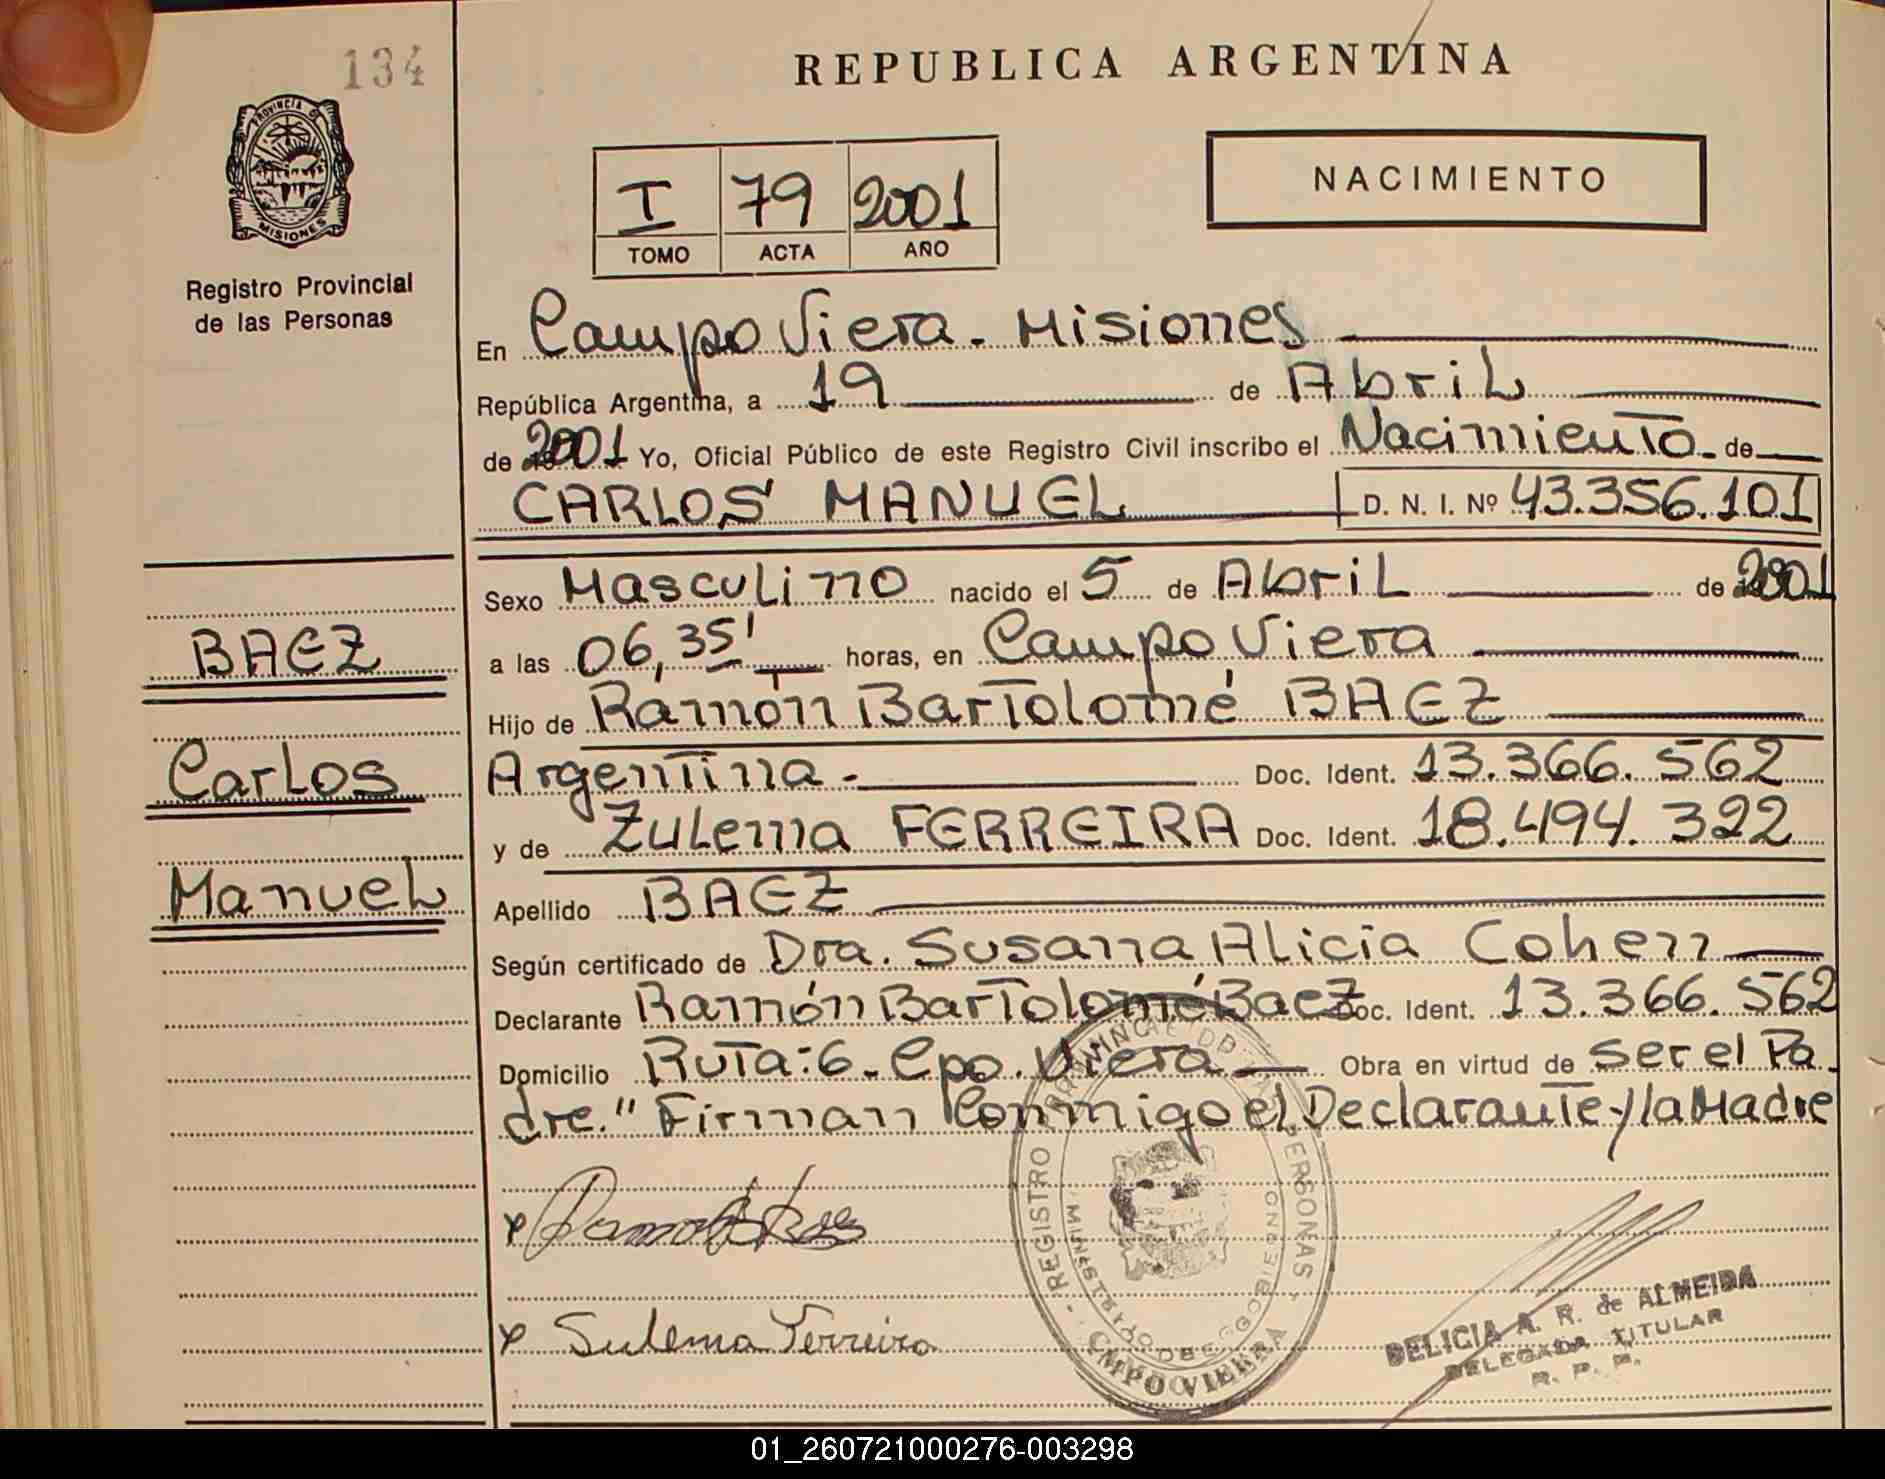 134
REPUBLICA ARGENTINA
PROVINCIA DE
MISIONES
Registro Provincial
de las Personas
I 79 2001
TOMO ACTA AÑO
NACIMIENTO
En Campo Viera - Misiones
República Argentina, a 19 de Abril
de 2001 Yo, Oficial Público de este Registro Civil inscribo el Nacimiento de
CARLOS MANUEL D. N. I. Nº 43.356.101
Sexo Masculino nacido el 5 de Abril de 2001
BAEZ
a las 06,35' horas, en Campo Viera
Hijo de Ramón Bartolomé BAEZ
Carlos
Argentina.- Doc. Ident. 13.366.562
y de Zulema FERREIRA Doc. Ident. 18.494.322
Manuel
Apellido BAEZ
Según certificado de Dra. Susana Alicia Cohen
Declarante Ramón Bartolomé Baez Doc. Ident. 13.366.562
Domicilio Ruta: 6 - Cpo. Viera Obra en virtud de ser el Pa-
dre." Firman Conmigo el Declarante y la Madre
x
x Sulema Ferreira
REGISTRO PROVINCIAL DE LAS PERSONAS
MINISTERIO DE GOBIERNO
CMPO VIERA
DELICIA A. R. de ALMEIDA
DELEGADA TITULAR
R. P. P.
01_260721000276-003298